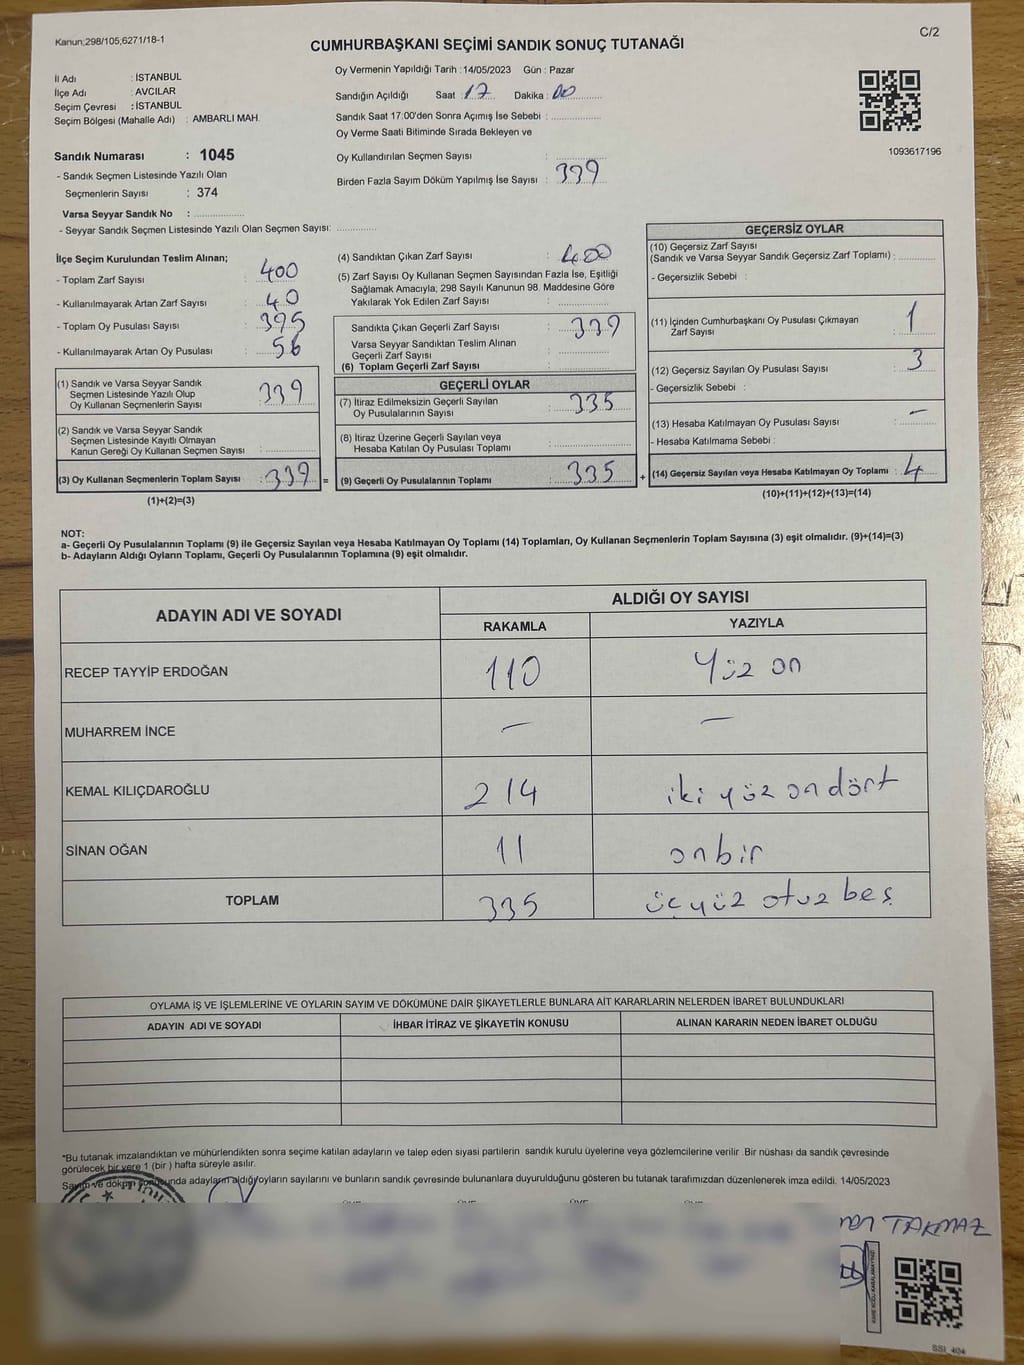 Kanun;298/105,6271/18-1
C/2
CUMHURBAŞKANI SEÇİMİ SANDIK SONUÇ TUTANAĞI
İl Adı : İSTANBUL
İlçe Adı : AVCILAR
Seçim Çevresi : İSTANBUL
Seçim Bölgesi (Mahalle Adı) : AMBARLI MAH.
Sandık Numarası : 1045
- Sandık Seçmen Listesinde Yazılı Olan
Seçmenlerin Sayısı : 374
Varsa Seyyar Sandık No : ..................
- Seyyar Sandık Seçmen Listesinde Yazılı Olan Seçmen Sayısı: ..............
Oy Vermenin Yapıldığı Tarih : 14/05/2023 Gün : Pazar
Sandığın Açıldığı Saat : 17 Dakika : 00
Sandık Saat 17:00'den Sonra Açımış İse Sebebi : ..................
Oy Verme Saati Bitiminde Sırada Bekleyen ve
Oy Kullandırılan Seçmen Sayısı : ..................
Birden Fazla Sayım Döküm Yapılmış İse Sayısı : 339
1093617196
İlçe Seçim Kurulundan Teslim Alınan;
- Toplam Zarf Sayısı : 400
- Kullanılmayarak Artan Zarf Sayısı : 40
- Toplam Oy Pusulası Sayısı : 395
- Kullanılmayarak Artan Oy Pusulası : 56
(1) Sandık ve Varsa Seyyar Sandık
Seçmen Listesinde Yazılı Olup
Oy Kullanan Seçmenlerin Sayısı : 339
(2) Sandık ve Varsa Seyyar Sandık
Seçmen Listesinde Kayıtlı Olmayan
Kanun Gereği Oy Kullanan Seçmen Sayısı : ..............
(3) Oy Kullanan Seçmenlerin Toplam Sayısı : 339 =
(1)+(2)=(3)
(4) Sandıktan Çıkan Zarf Sayısı : 400
(5) Zarf Sayısı Oy Kullanan Seçmen Sayısından Fazla İse, Eşitliği
Sağlamak Amacıyla; 298 Sayılı Kanunun 98. Maddesine Göre
Yakılarak Yok Edilen Zarf Sayısı : ..................
Sandıkta Çıkan Geçerli Zarf Sayısı : 339
Varsa Seyyar Sandıktan Teslim Alınan
Geçerli Zarf Sayısı : ..................
(6) Toplam Geçerli Zarf Sayısı :
GEÇERLİ OYLAR
(7) İtiraz Edilmeksizin Geçerli Sayılan
Oy Pusulalarının Sayısı : 335
(8) İtiraz Üzerine Geçerli Sayılan veya
Hesaba Katılan Oy Pusulası Toplamı : ..................
(9) Geçerli Oy Pusulalarının Toplamı : 335 +
GEÇERSİZ OYLAR
(10) Geçersiz Zarf Sayısı
(Sandık ve Varsa Seyyar Sandık Geçersiz Zarf Toplamı) : ..............
- Geçersizlik Sebebi :
(11) İçinden Cumhurbaşkanı Oy Pusulası Çıkmayan
Zarf Sayısı : 1
(12) Geçersiz Sayılan Oy Pusulası Sayısı : 3
- Geçersizlik Sebebi :
(13) Hesaba Katılmayan Oy Pusulası Sayısı : -
- Hesaba Katılmama Sebebi :
(14) Geçersiz Sayılan veya Hesaba Katılmayan Oy Toplamı : 4
(10)+(11)+(12)+(13)=(14)
NOT:
a- Geçerli Oy Pusulalarının Toplamı (9) ile Geçersiz Sayılan veya Hesaba Katılmayan Oy Toplamı (14) Toplamları, Oy Kullanan Seçmenlerin Toplam Sayısına (3) eşit olmalıdır. (9)+(14)=(3)
b- Adayların Aldığı Oyların Toplamı, Geçerli Oy Pusulalarının Toplamına (9) eşit olmalıdır.
ADAYIN ADI VE SOYADI
ALDIĞI OY SAYISI
RAKAMLA YAZIYLA
RECEP TAYYİP ERDOĞAN 110 Yüz on
MUHARREM İNCE - -
KEMAL KILIÇDAROĞLU 214 iki yüz on dört
SİNAN OĞAN 11 onbir
TOPLAM 335 üçyüz otuz beş
OYLAMA İŞ VE İŞLEMLERİNE VE OYLARIN SAYIM VE DÖKÜMÜNE DAİR ŞİKAYETLERLE BUNLARA AİT KARARLARIN NELERDEN İBARET BULUNDUKLARI
ADAYIN ADI VE SOYADI İHBAR İTİRAZ VE ŞİKAYETİN KONUSU ALINAN KARARIN NEDEN İBARET OLDUĞU
*Bu tutanak imzalandıktan ve mühürlendikten sonra seçime katılan adayların ve talep eden siyasi partilerin sandık kurulu üyelerine veya gözlemcilerine verilir .Bir nüshası da sandık çevresinde
görülecek bir yere 1 (bir ) hafta süreyle asılır.
Sayım ve döküm sonucunda adayların aldığı oyların sayılarını ve bunların sandık çevresinde bulunanlara duyurulduğunu gösteren bu tutanak tarafımızdan düzenlenerek imza edildi. 14/05/2023
TAKMAZ
SSİ_404